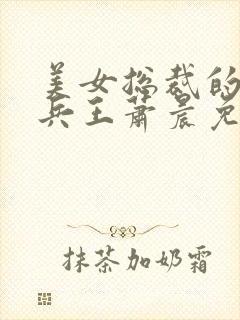 美女总裁的
兵王萧晨免
抹茶加奶霜